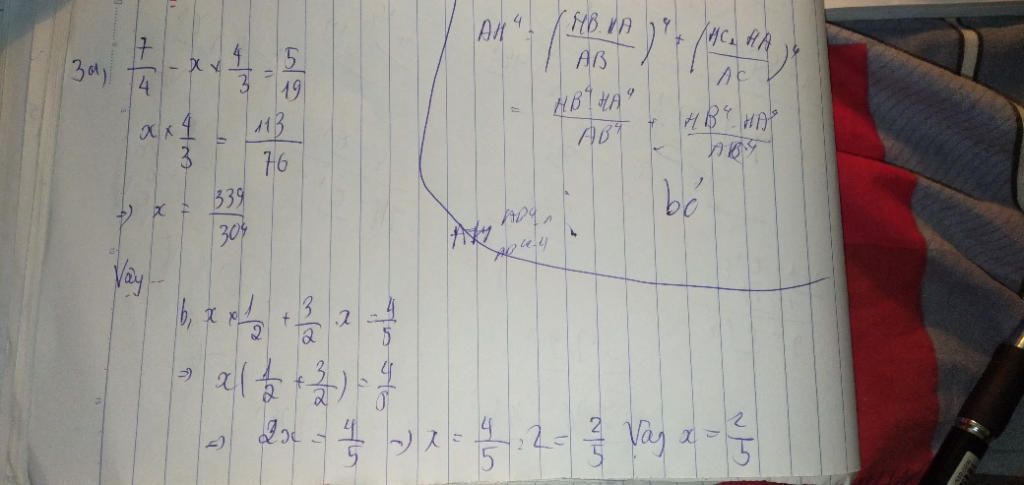 3a, 7/4 - x × 4/3 = 5/19
x × 4/3 = 113/76
=> x = 339/304
Vậy -
b, x × 1/2 + 3/2 . x = 4/5
=> x(1/2 + 3/2) = 4/5
=> 2x = 4/5 => x = 4/5 : 2 = 2/5 Vậy x = 2/5
AH⁴ = (HB.HA/AB)⁴ + (HC.HA/AC)⁴
= HB⁴.HA⁴/AB⁴ + HB⁴.HA⁴/AB⁴
bỏ